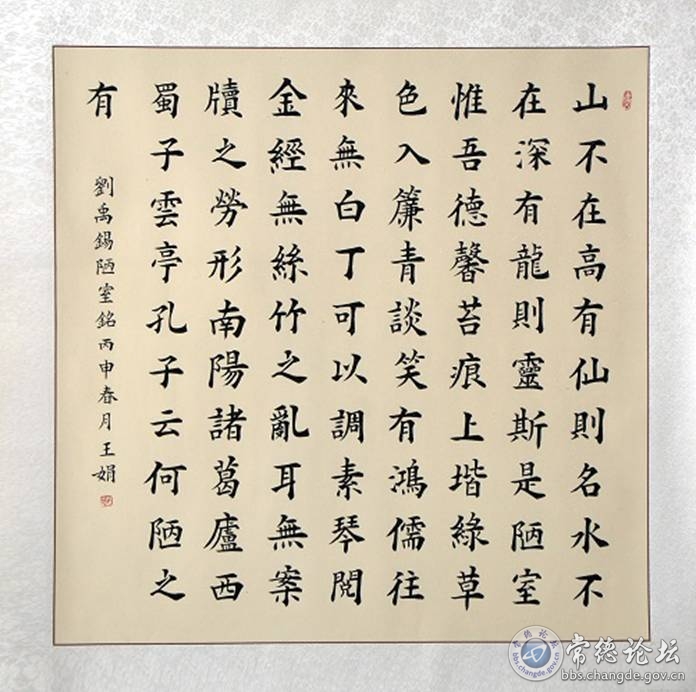 山不在高有仙則名水不
在深有龍則靈斯是陋室
惟吾德馨苔痕上堦綠草
色入簾青談笑有鴻儒往
來無白丁可以調素琴閱
金經無絲竹之亂耳無案
牘之勞形南陽諸葛廬西
蜀子雲亭孔子云何陋之
有
劉禹錫陋室銘丙申春月王娟
常德论坛
bbs.changde.gov.cn